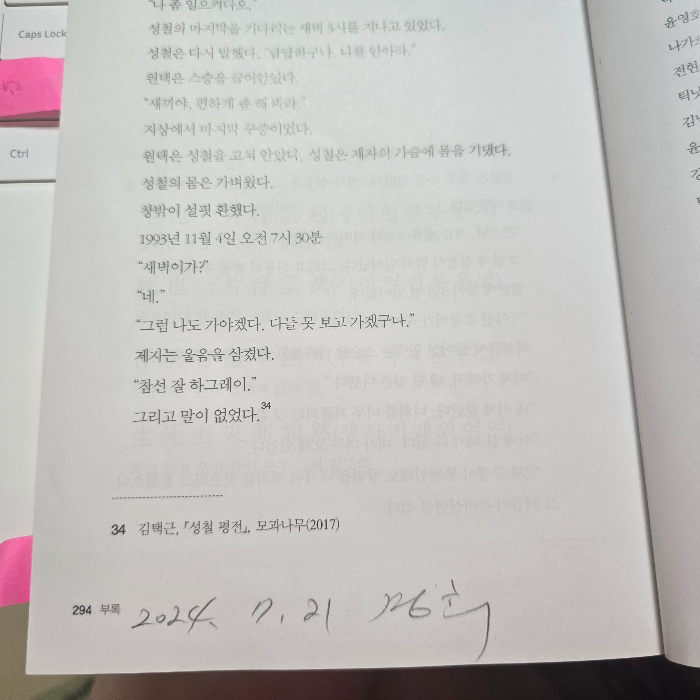 Caps Lock
Ctrl
"나 좀 일으켜다오."
성철의 마지막을 기다리는 새벽 3시를 지나고 있었다.
성철은 다시 말했다. "답답하구나. 나를 안아라."
원택은 스승을 끌어안았다.
"새끼야, 편하게 좀 해 봐라."
지상에서 마지막 꾸중이었다.
원택은 성철을 고쳐 안았다. 성철은 제자의 가슴에 몸을 기댔다.
성철의 몸은 가벼웠다.
창밖이 설핏 환했다.
1993년 11월 4일 오전 7시 30분
"새벽이가?"
"네."
"그럼 나도 가야겠다. 다들 못 보고 가겠구나."
제자는 울음을 삼켰다.
"참선 잘 하그레이."
그리고 말이 없었다.34
34 김택근, 『성철 평전』, 모과나무(2017)
294 부록
2024. 7. 21
윤영호
나가
전현
틱낫
김
윤